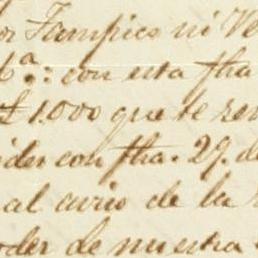 or Tampico ni Ve
6ª: con esta fha
£1.000 que se ren
ider con fha. 29. de
al avio de la
oder de nuestra